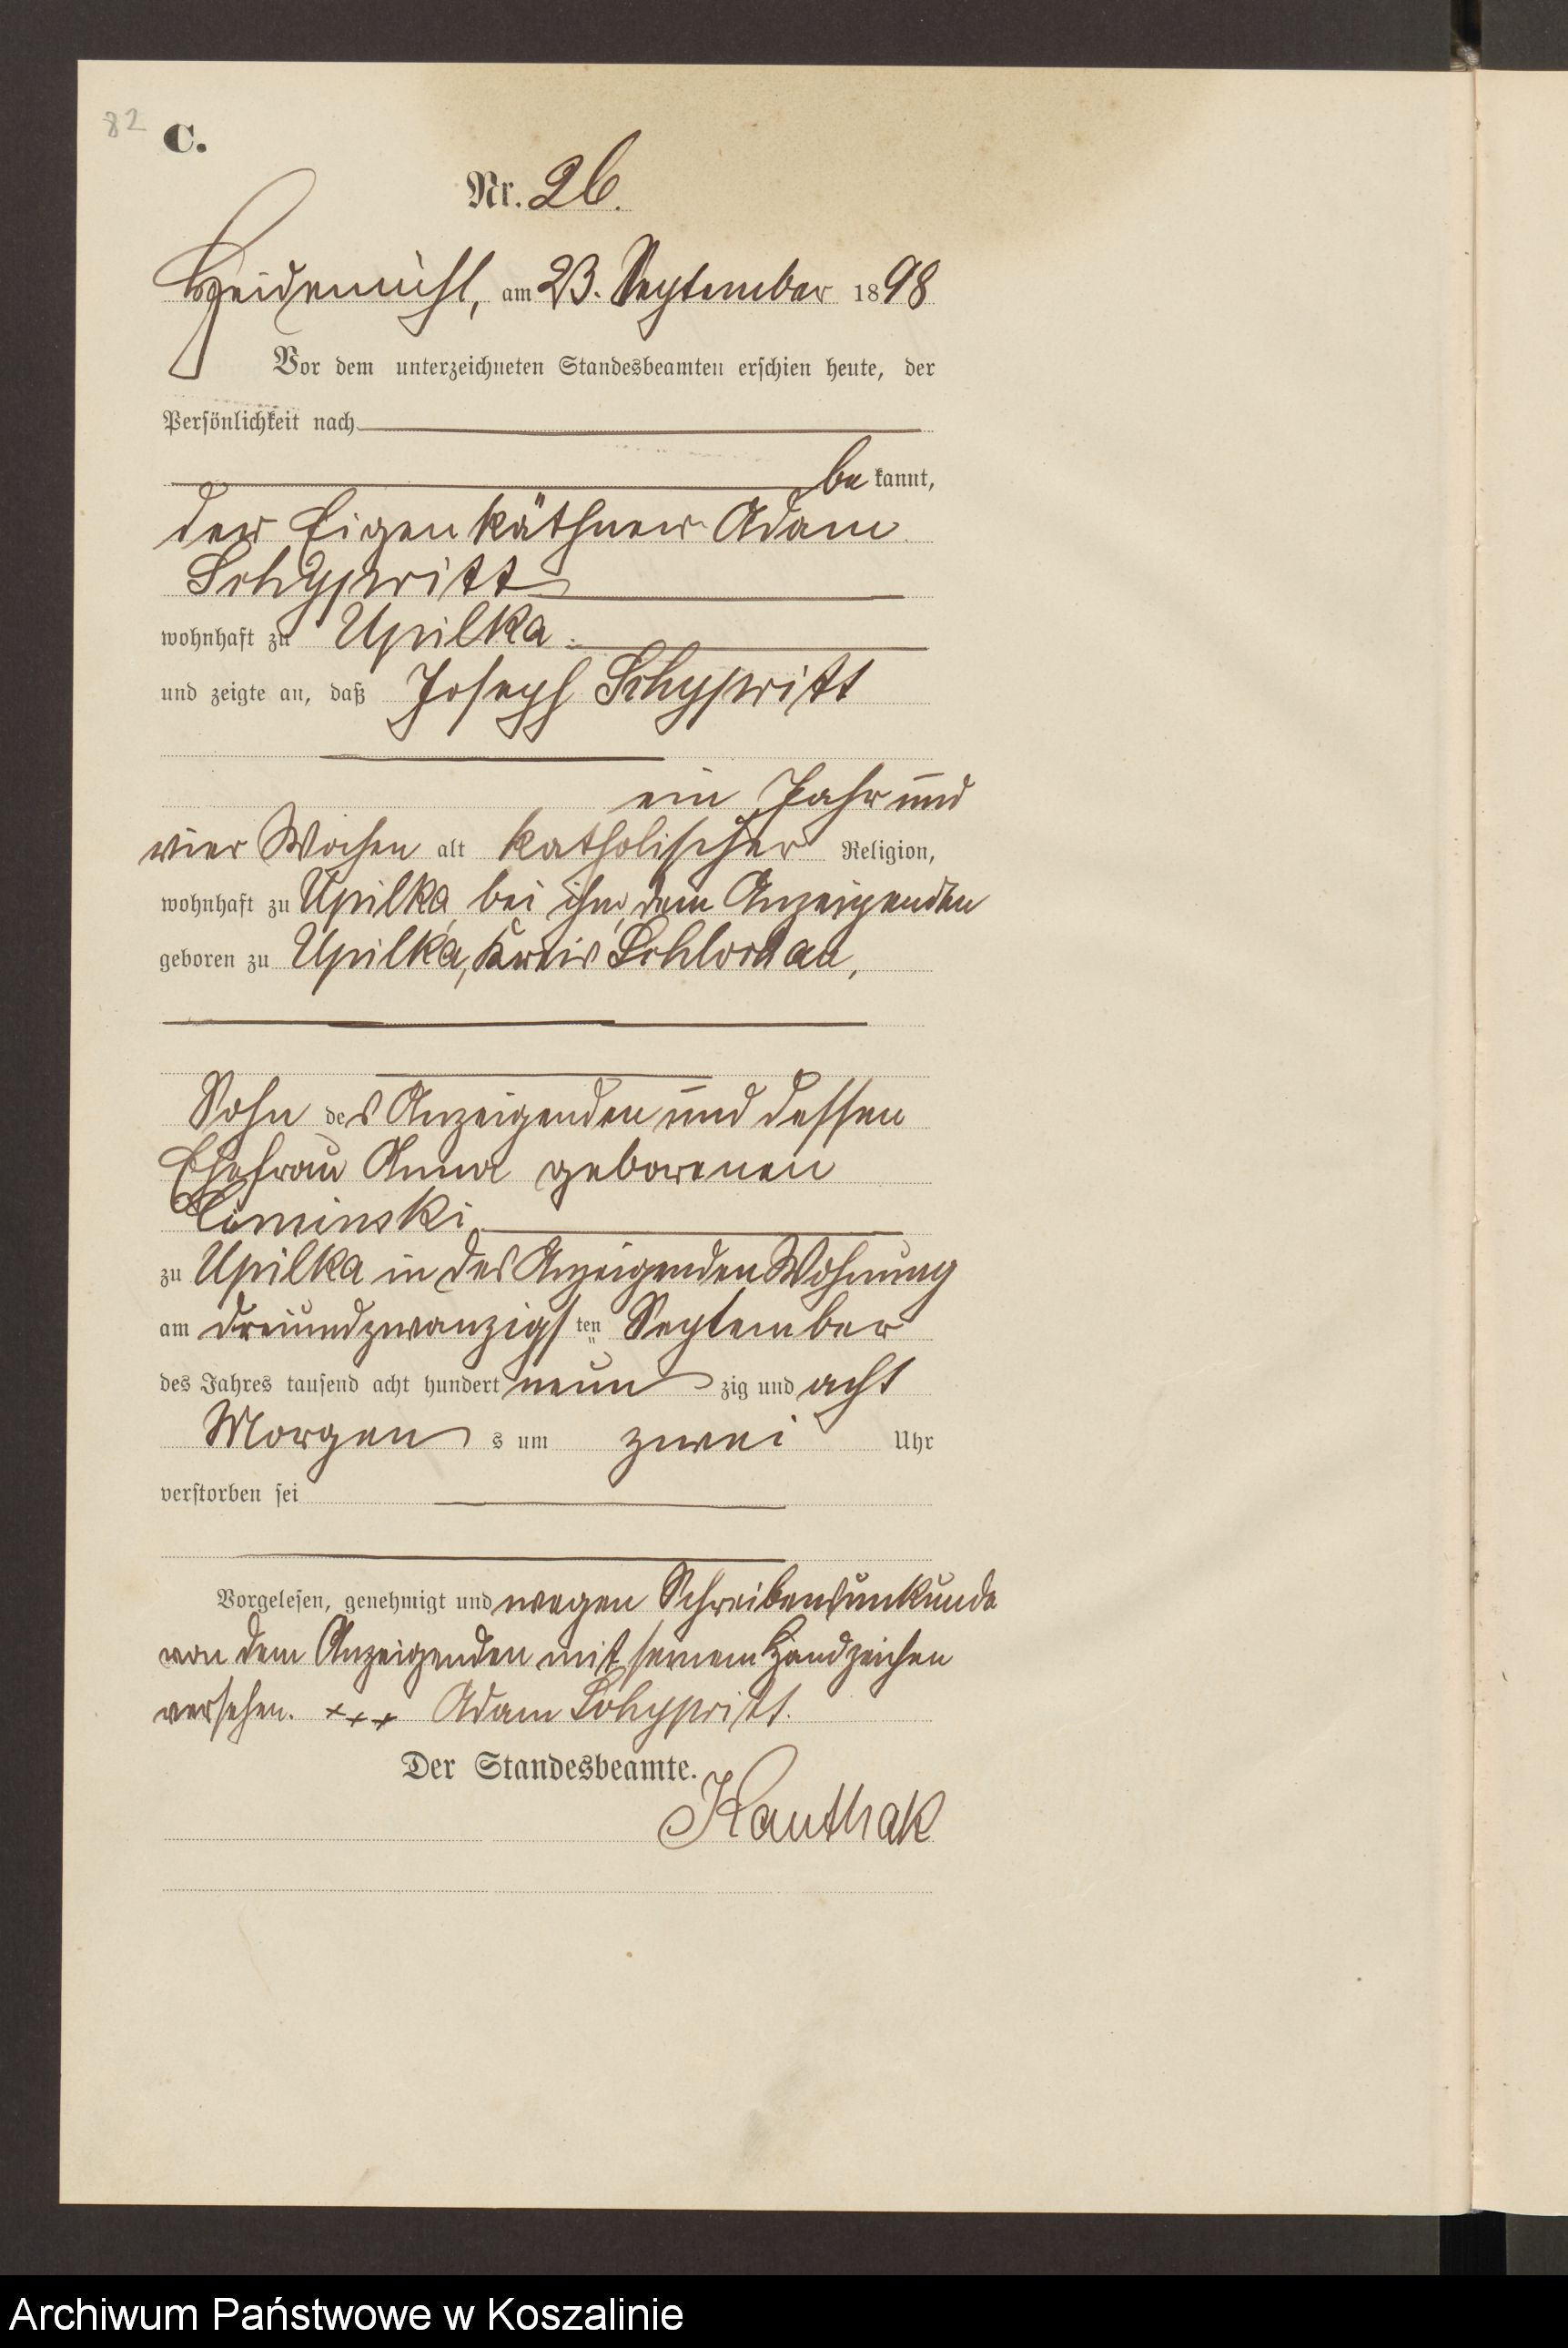 82 C.
Nr. 26.
Heidemühl, am 23. September 1898
Vor dem unterzeichneten Standesbeamten erschien heute, der
Persönlichkeit nach
be kannt,
der Eigenkäthner Adam
Schypritt
wohnhaft zu Upilka
und zeigte an, daß Joseph Schypritt
ein Jahr und
vier Wochen alt katholischer Religion,
wohnhaft zu Upilka, bei ihm, dem Anzeigenden
geboren zu Upilka, Kreis Schlochau,
Sohn des Anzeigenden und dessen
Ehefrau Anna geborenen
zu Upilka in des Anzeigenden Wohnung
am dreiundzwanzigsten September
des Jahres tausend acht hundert neunzig und acht
Morgens um zwei Uhr
verstorben sei
Vorgelesen, genehmigt und wegen Schreibensunkunde
von dem Anzeigenden mit seinem Handzeichen
versehen. +++ Adam Schypritt.
Der Standesbeamte.
Kauthak
Archiwum Państwowe w Koszalinie